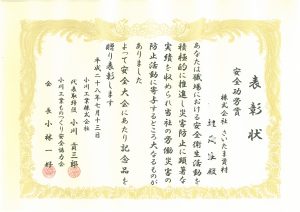 表彰状
安全功労賞
株式会社 さいたま資材
殿
あなたは職場における安全衛生活動を
積極的に推進し災害防止に顕著な
実績を収められ当社の労働災害の
防止活動に寄与するところ大なるものが
ありました
よって安全大会にあたり記念品を
贈り表彰します
平成二十八年七月十三日
小川工業株式会社
代表取締役 小川貢三郎
小川工業ものつくり安全協力会
会長 小林一好